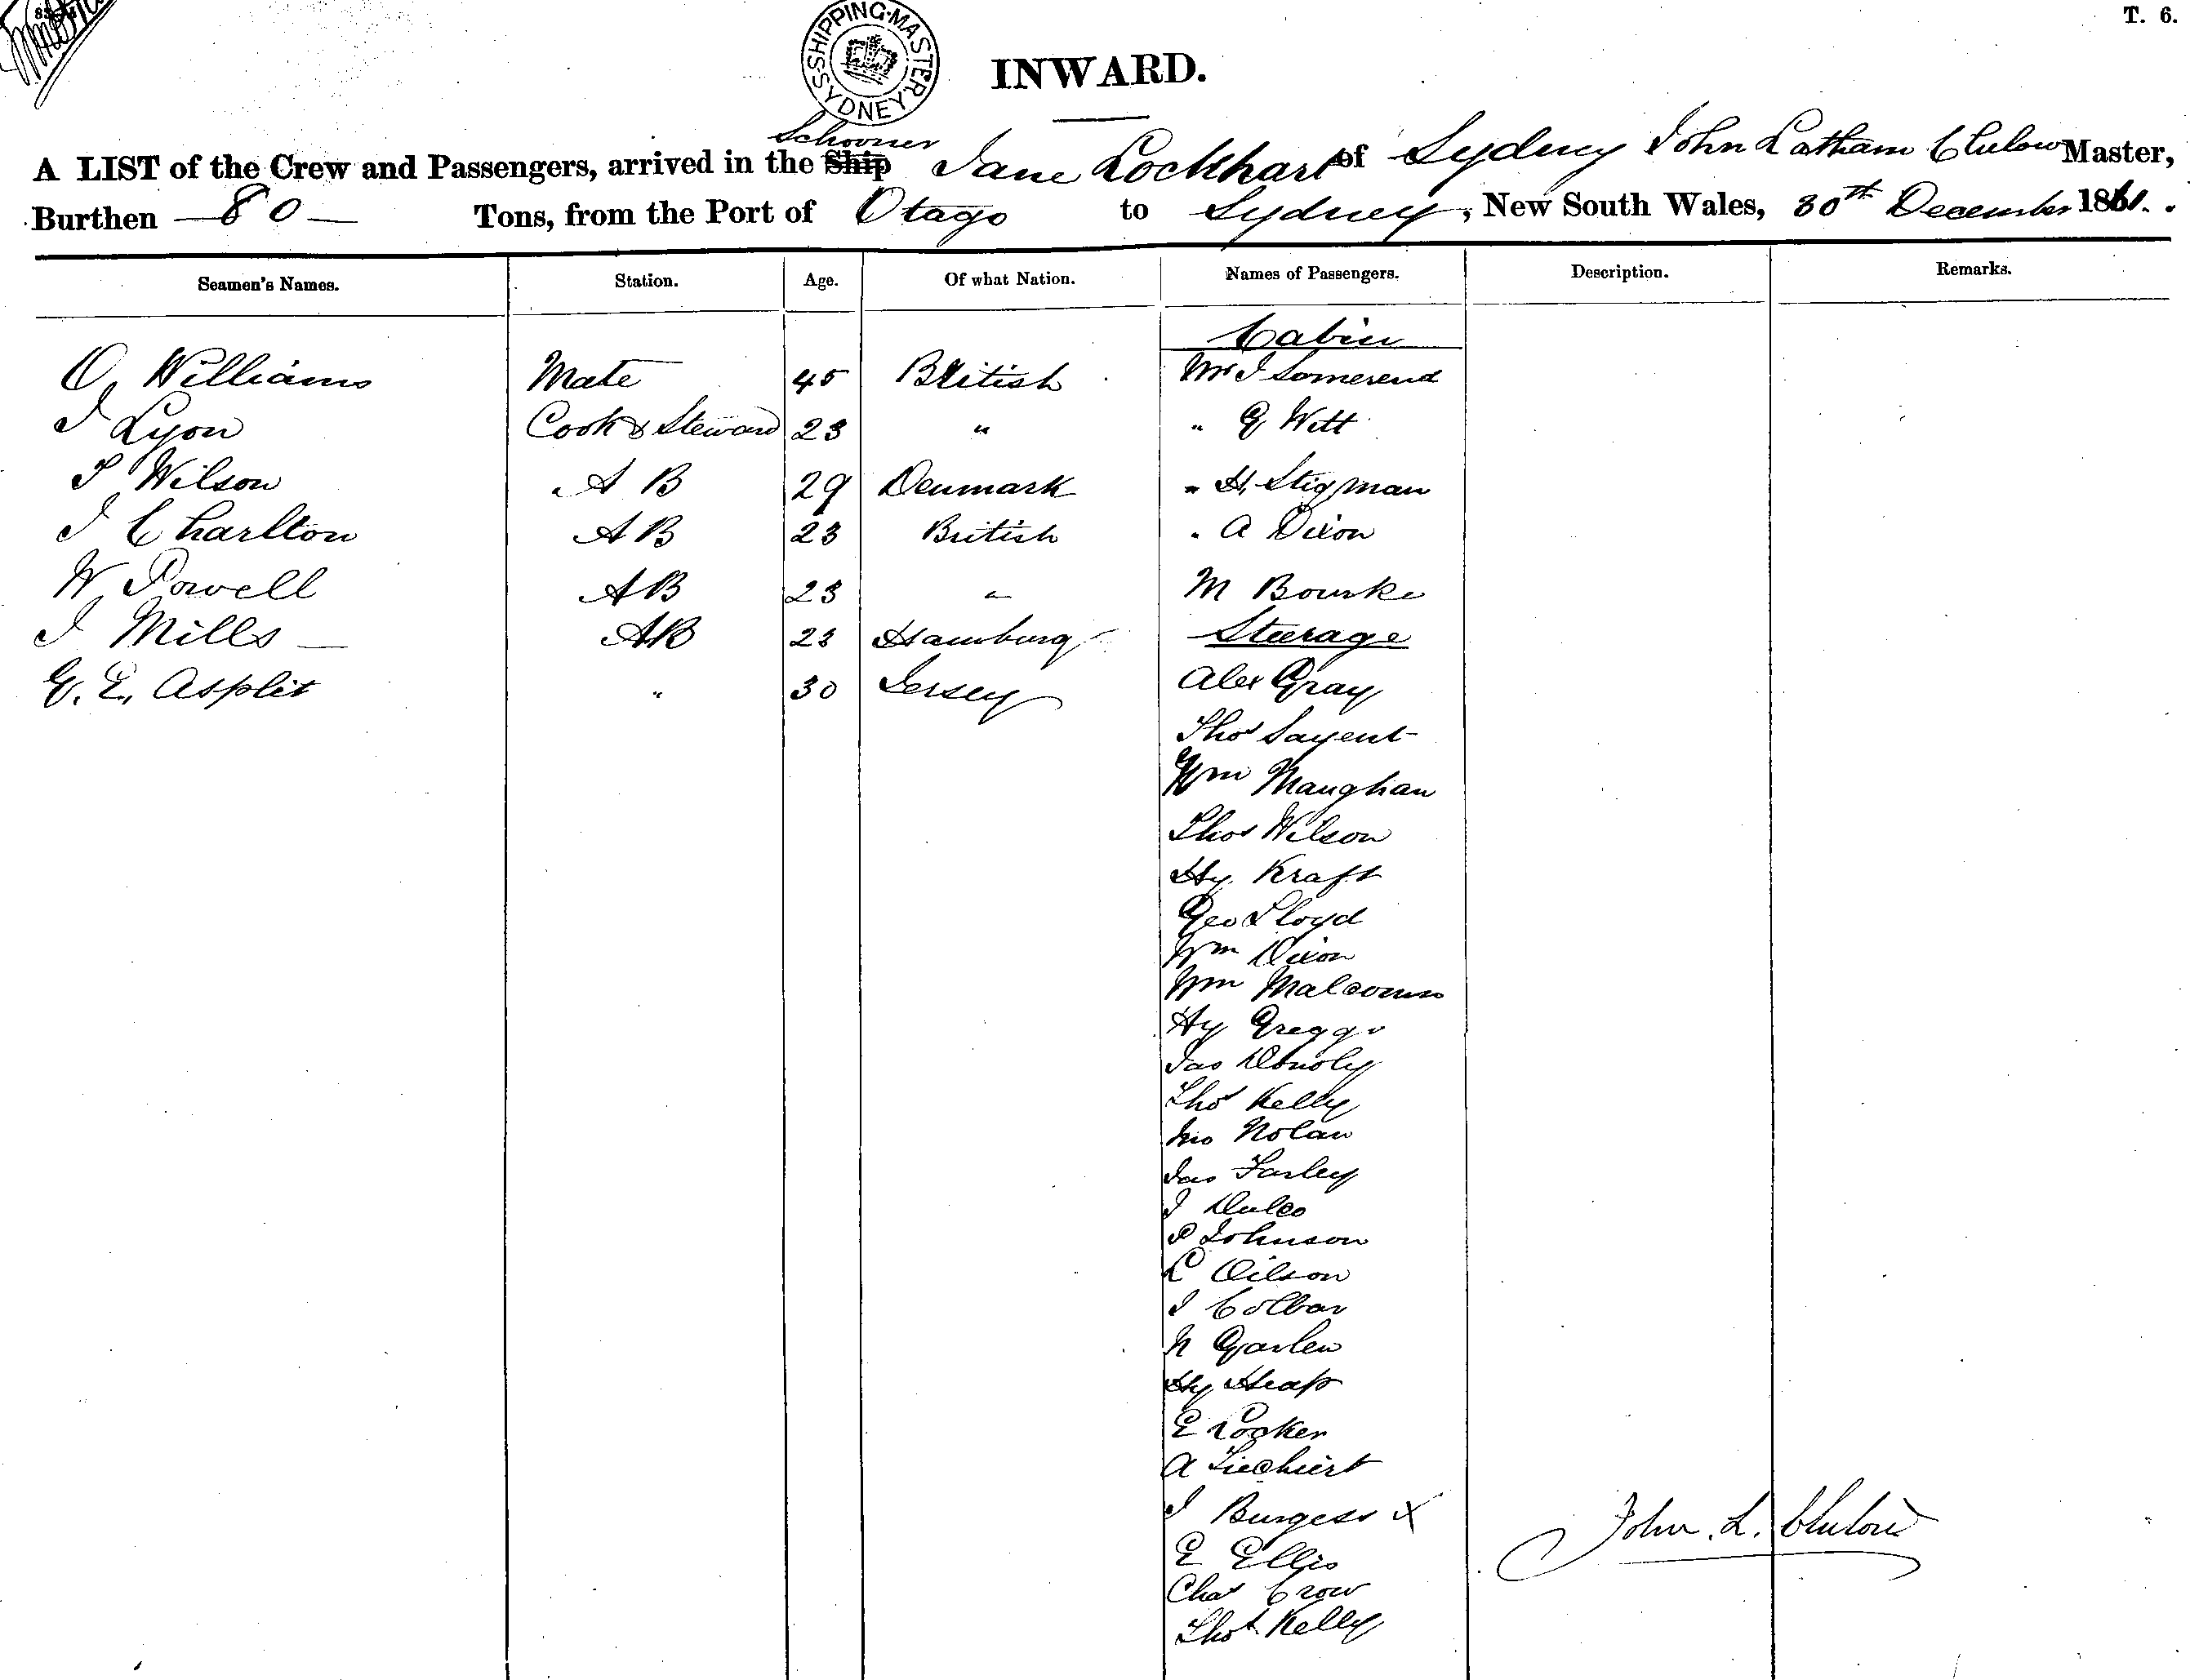 T. 6.
SHIPPING MASTER SYDNEY
INWARD.
Schooner
A LIST of the Crew and Passengers, arrived in the Ship Jane Lockhart of Sydney John Latham Clulow Master,
Burthen 80 Tons, from the Port of Otago to Sydney, New South Wales, 30th December 1861.
Seamen's Names. Station. Age. Of what Nation. Names of Passengers. Description. Remarks.
Cabin
O. Williams Mate 45 British Mr J Somerend
J Lyon Cook & Steward 23 " " G Witt
P Wilson A B 29 Denmark " H. Stigman
J Charlton A B 23 British " A Dixon
W Powell A B 23 " M Bourke
J Mills A B 23 Hamburg Steerage
G. E. Asplit " 30 Jersey Alex Gray
Thos Sayent
Wm Maughan
Thos Wilson
Hy Kraft
Geo Lloyd
Wm Dixon
Wm Malcomn
Hy Greggs
Jas Donoly
Thos Kelly
Jno Nolan
Jas Farley
J
P Johnson
C Oilson
J Colbar
N Garlen
Hy Heap
E Locker
A
J Burgess x
E Ellis
Chas Crow
Thos Kelly
John. L. Clulow